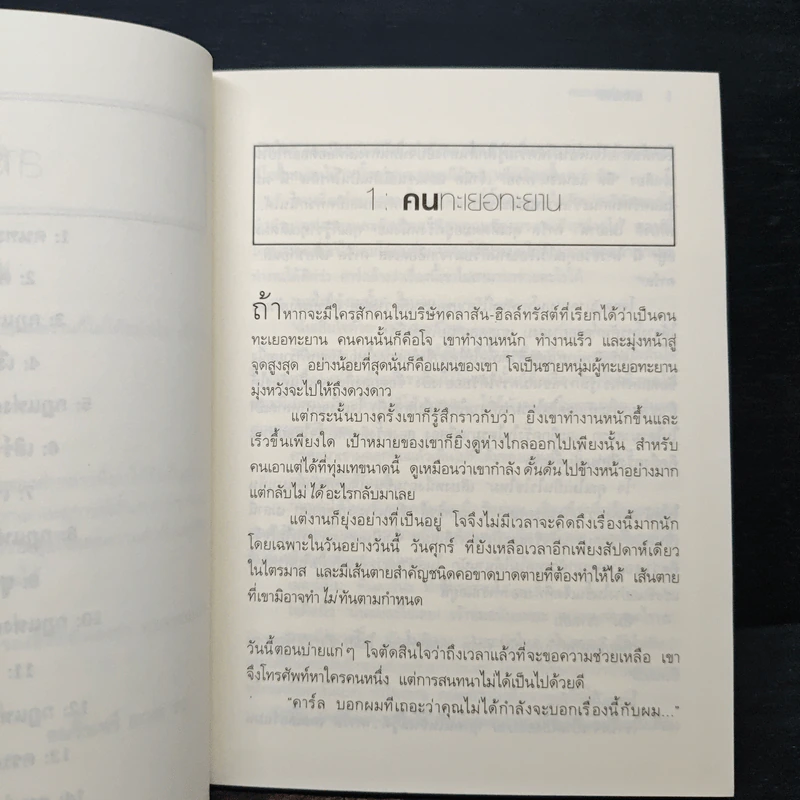 1: คนทะเยอทะยาน
ถ้าหากจะมีใครสักคนในบริษัทคลาสัน-ฮิลล์ทรัสต์ที่เรียกได้ว่าเป็นคน
ทะเยอทะยาน คนคนนั้นก็คือโจ เขาทำงานหนัก ทำงานเร็ว และมุ่งหน้าสู่
จุดสูงสุด อย่างน้อยที่สุดนั่นก็คือแผนของเขา โจเป็นชายหนุ่มผู้ทะเยอทะยาน
มุ่งหวังจะไปให้ถึงดวงดาว
แต่กระนั้นบางครั้งเขาก็รู้สึกราวกับว่า ยิ่งเขาทำงานหนักขึ้นและ
เร็วขึ้นเพียงใด เป้าหมายของเขาก็ยิ่งดูห่างไกลออกไปเพียงนั้น สำหรับ
คนเอาแต่ได้ที่ทุ่มเทขนาดนี้ ดูเหมือนว่าเขากำลังดั้นด้นไปข้างหน้าอย่างมาก
แต่กลับไม่ได้อะไรกลับมาเลย
แต่งานก็ยุ่งอย่างที่เป็นอยู่ โจจึงไม่มีเวลาจะคิดถึงเรื่องนี้มากนัก
โดยเฉพาะในวันอย่างวันนี้ วันศุกร์ ที่ยังเหลือเวลาอีกเพียงสัปดาห์เดียว
ในไตรมาส และมีเส้นตายสำคัญชนิดคอขาดบาดตายที่ต้องทำให้ได้ เส้นตาย
ที่เขามิอาจทำไม่ทันตามกำหนด
วันนี้ตอนบ่ายแก่ๆ โจตัดสินใจว่าถึงเวลาแล้วที่จะขอความช่วยเหลือ เขา
จึงโทรศัพท์หาใครคนหนึ่ง แต่การสนทนาไม่ได้เป็นไปด้วยดี
"คาร์ล บอกผมทีเถอะว่าคุณไม่ได้กำลังจะบอกเรื่องนี้กับผม..."